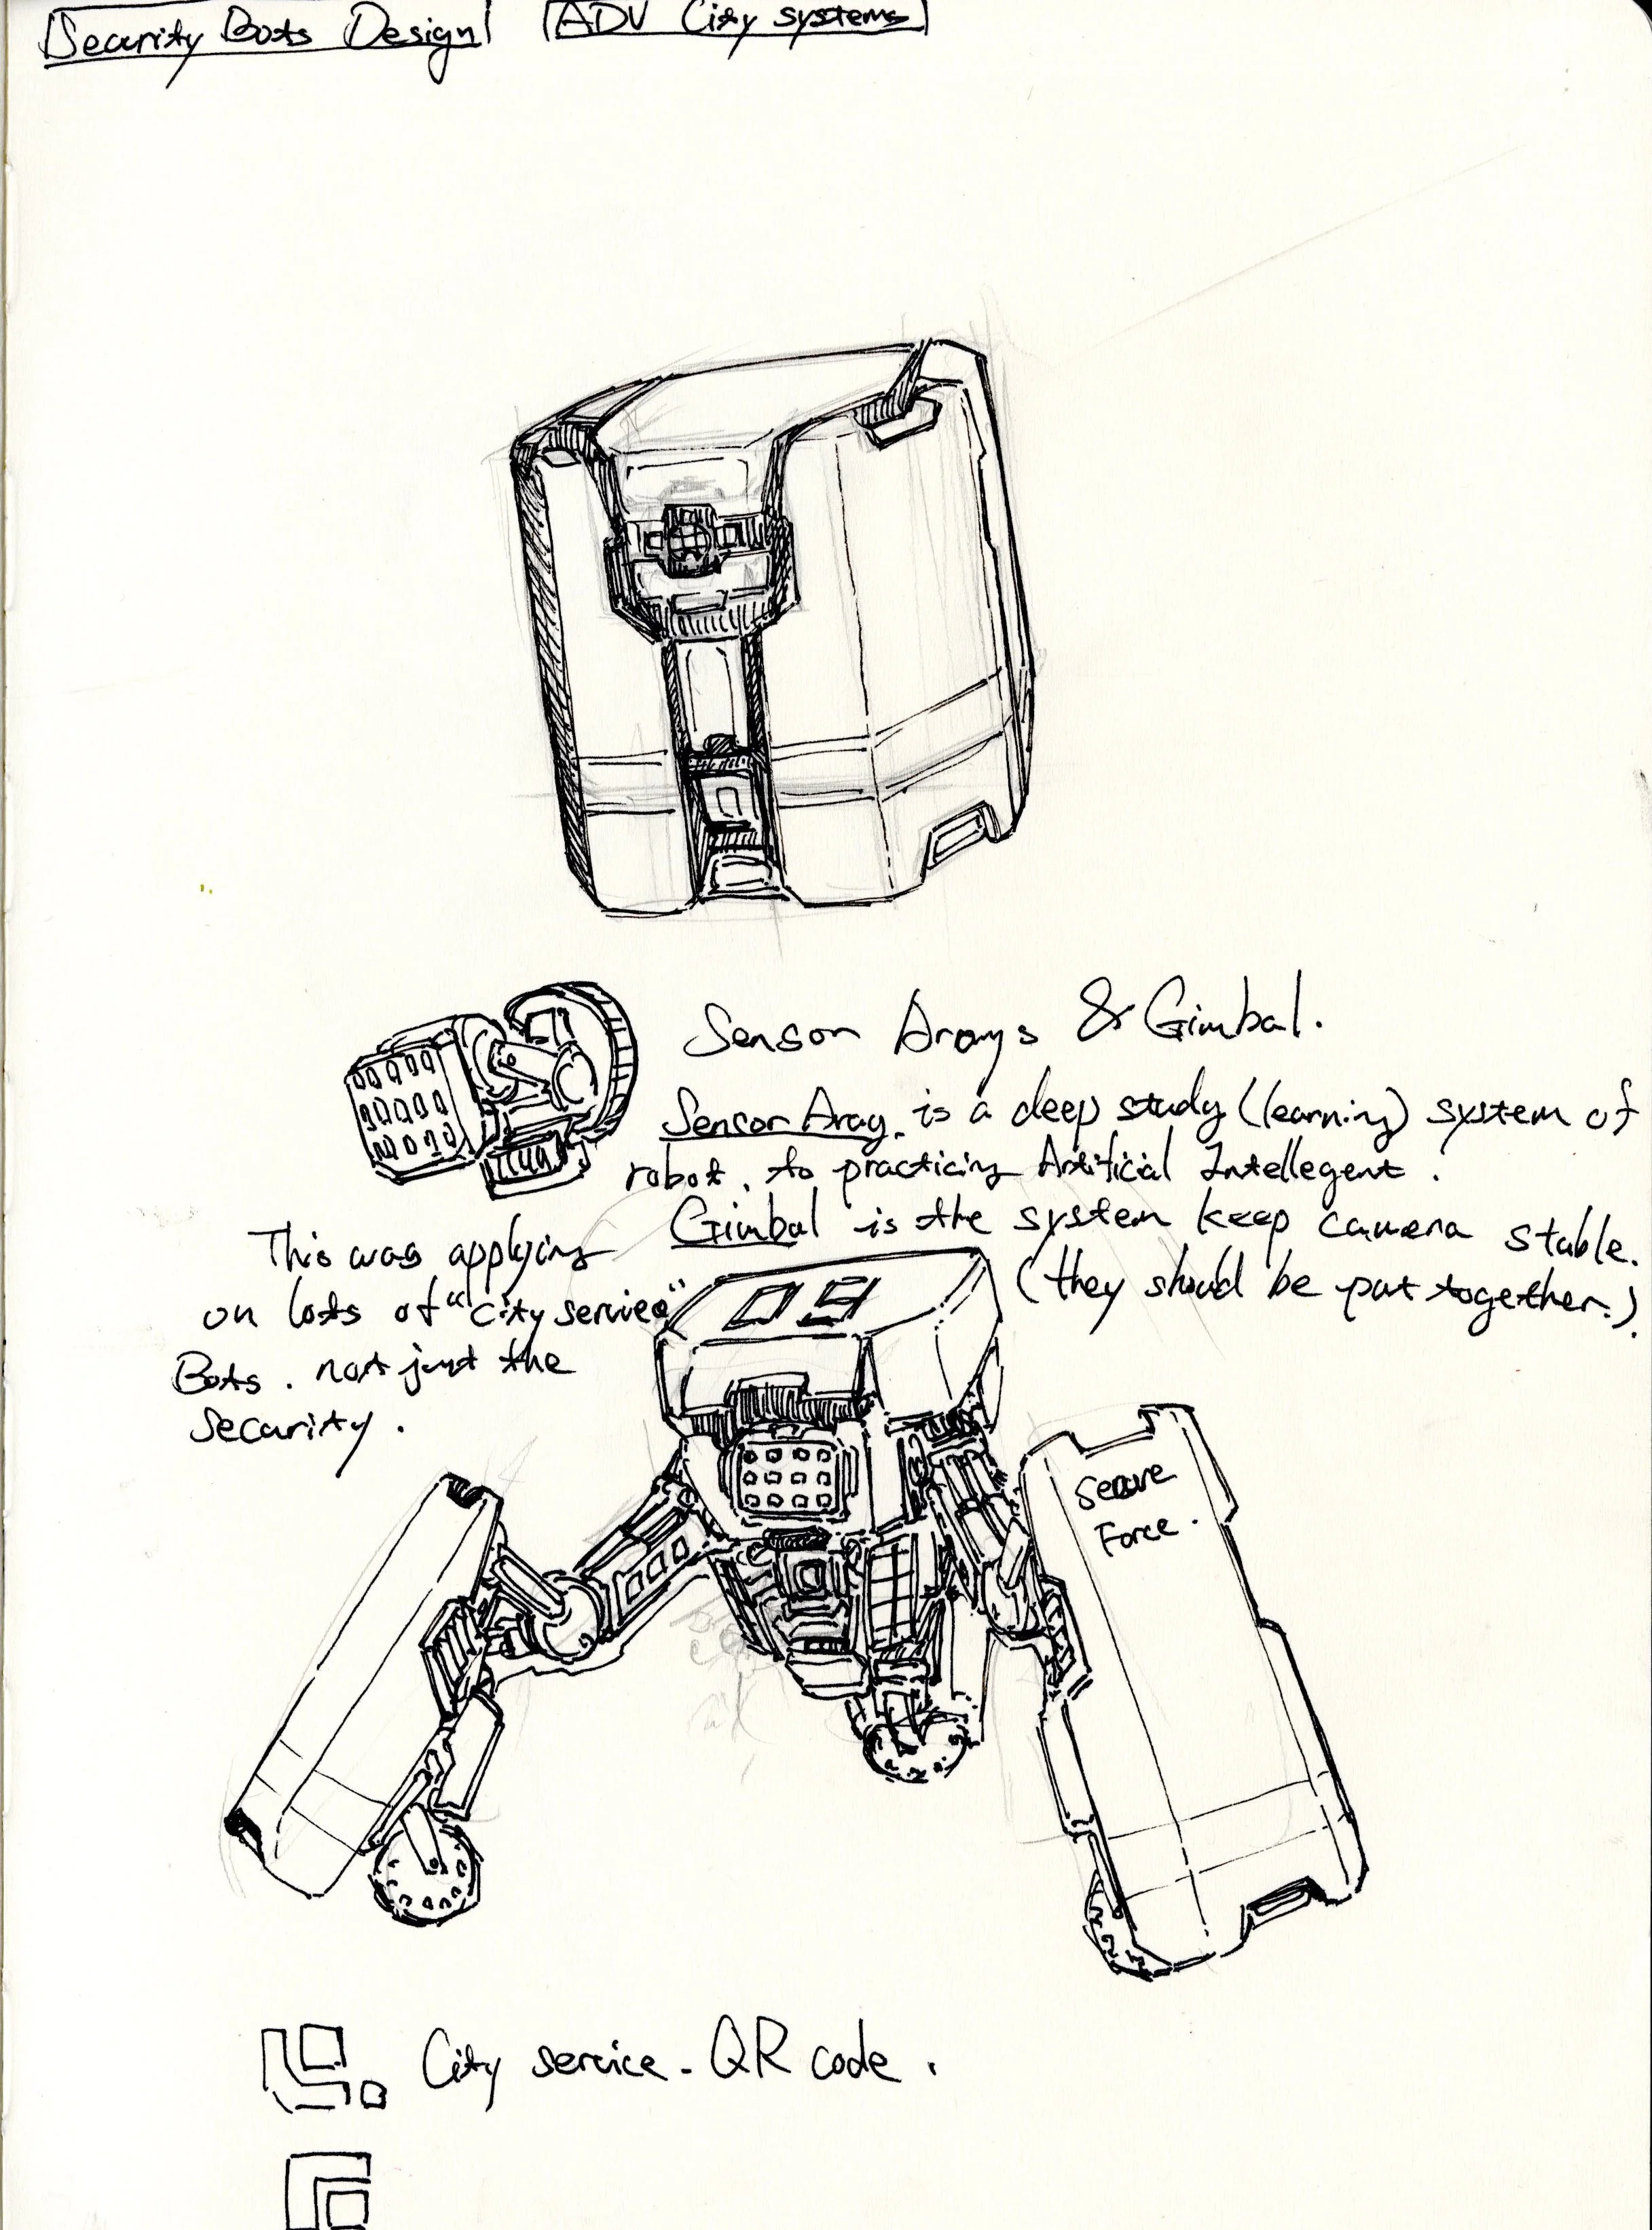 Security Bots Design
ADV City systems
Sensor Arays & Gimbal.
Sensor Aray. is a deep study (learning) system of
robot. to practicing Artificial Intellegent.
Gimbal is the system keep camera stable.
(they should be put together.)
This was applying
on lots of "city service"
Bots. not just the
Security.
09
Secure
Force.
City service - QR code.